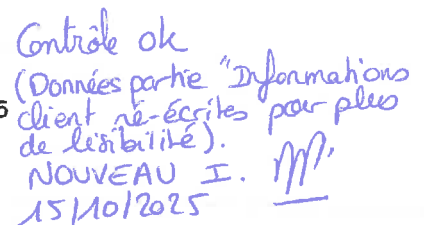 Contrôle ok
(Données partie "Informations
client ré-écrites pour plus
de lisibilité).
NOUVEAU I.
15/10/2025